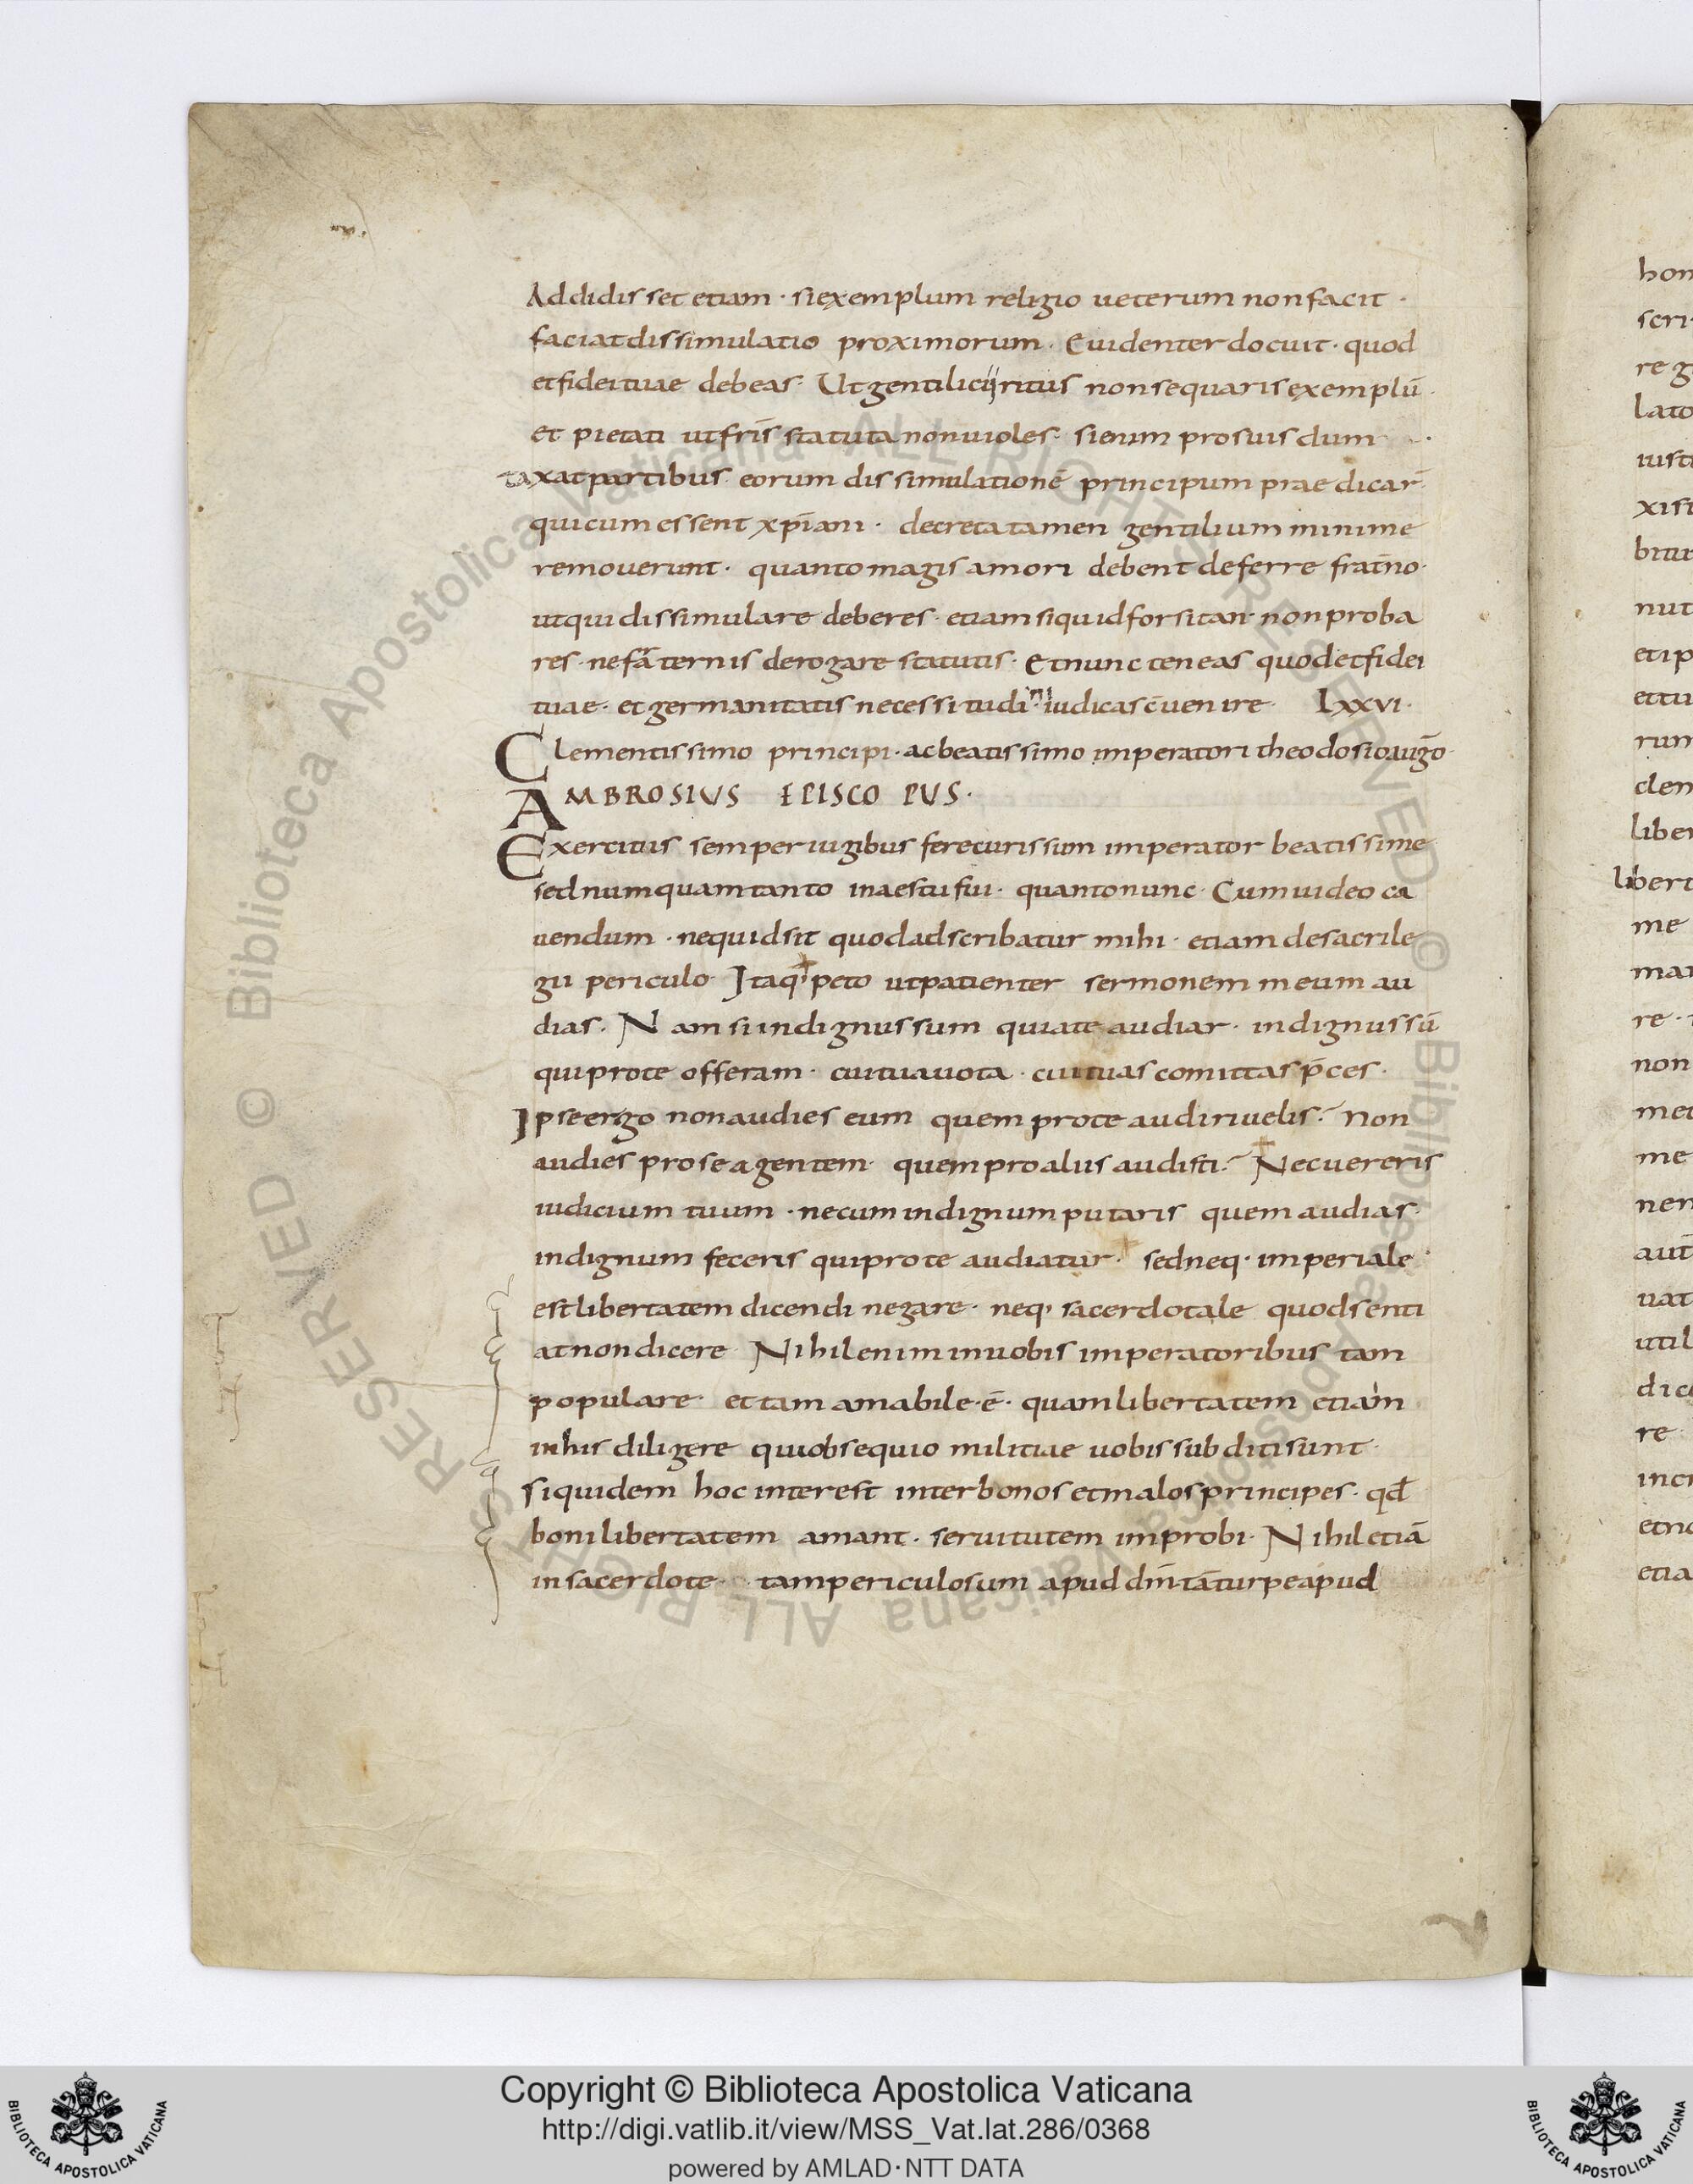 Addidisset etiam · si exemplum religio ueterum non facit ·
faciat dissimulatio proximorum · Euidenter docuit · quod
et fidei tuae debeas · Ut gentilicii ritus non sequaris exemplū ·
et pietati ut fr̄is statuta non uioles · si enim pro suis dum
taxat partibus eorum dissimulationē principum praedicar̄
qui cum essent xp̄iani · decreta tamen gentilium minime
remouerunt · quanto magis amori debent deferre frat̄no ·
ut qui dissimulare deberes · etiam si quid forsitan non proba
res · ne fraternis derogare statutis · Et nunc teneas quod et fidei
tuae · et germanitatis necessitudini iudicas c̄uenire · LXXVI ·
Clementissimo principi · ac beatissimo imperatori theodosio auḡo ·
AMBROSIUS EPISCOPUS ·
Exercitus semper iugibus fere curis sum imperator beatissime
sed numquam tanto in aestu fui · quanto nunc · Cum uideo ca
uendum · ne quid sit quod adscribatur mihi · etiam de sacrile
gii periculo · Itaq; peto ut patienter sermonem meum au
dias · Nam si indignus sum qui a te audiar · indignus sū
qui pro te offeram · cui tua uota · cui tuas comittas p̄ces ·
Ipse ergo non audies eum quem pro te audiri uelis · Non
audies pro se agentem · quem pro aliis audisti · Nec uereris
iudicium tuum · ne cum indignum putaris quem audias ·
indignum feceris qui pro te audiatur · sed neq; imperiale
est libertatem dicendi negare · neq; sacerdotale quod senti
at non dicere Nihil enim in uobis imperatoribus tam
populare · et tam amabile · ē · quam libertatem etiam
in his diligere qui obsequio militiae uobis subditi sunt ·
siquidem hoc interest inter bonos et malos principes · qđ
boni libertatem amant · seruitutem improbi · Nihil etiā
in sacerdote tam periculosum apud dm̄ tā turpe apud
Copyright © Biblioteca Apostolica Vaticana
http://digi.vatlib.it/view/MSS_Vat.lat.286/0368
powered by AMLAD·NTT DATA